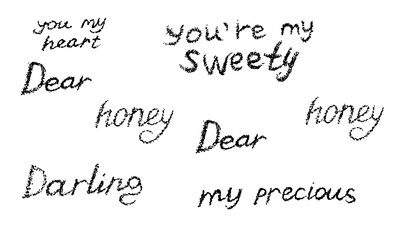 you my
heart
you're my
sweety
Dear
honey
honey
Dear
Darling
my precious